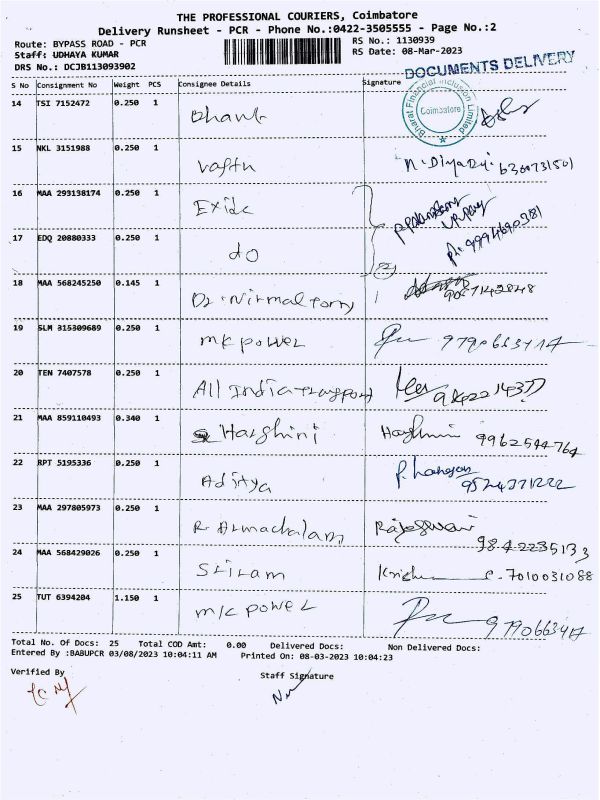 THE PROFESSIONAL COURIERS, Coimbatore
Delivery Runsheet - PCR - Phone No.:0422-3505555 - Page No.:2
Route: BYPASS ROAD - PCR
Staff: UDHAYA KUMAR
DRS No.: DCJB113093902
RS No.: 1130939
RS Date: 08-Mar-2023
DOCUMENTS DELIVERY
S No Consignment No Weight PCS Consignee Details Signature
Bharat Financial Inclusion Limited
Coimbatore
14 TSI 7152472 0.250 1
15 NKL 3151988 0.250 1 6360731501
16 MAA 293138174 0.250 1 Exide
17 EDQ 20880333 0.250 1 do ph: 9994690381
18 MAA 568245250 0.145 1
19 SLM 315309689 0.250 1 mk power
20 TEN 7407578 0.250 1 All India transport
21 MAA 859110493 0.340 1 Harshini Harshini 9962544764
22 RPT 5195336 0.250 1 Aditya
23 MAA 297805973 0.250 1 R. Arunachalam Rajeswari 9842235133
24 MAA 568429026 0.250 1 Sriram 7010031088
25 TUT 6394204 1.150 1 m/c power
Total No. Of Docs: 25 Total COD Amt: 0.00 Delivered Docs: Non Delivered Docs:
Entered By :BABUPCR 03/08/2023 10:04:11 AM Printed On: 08-03-2023 10:04:23
Verified By
Staff Signature